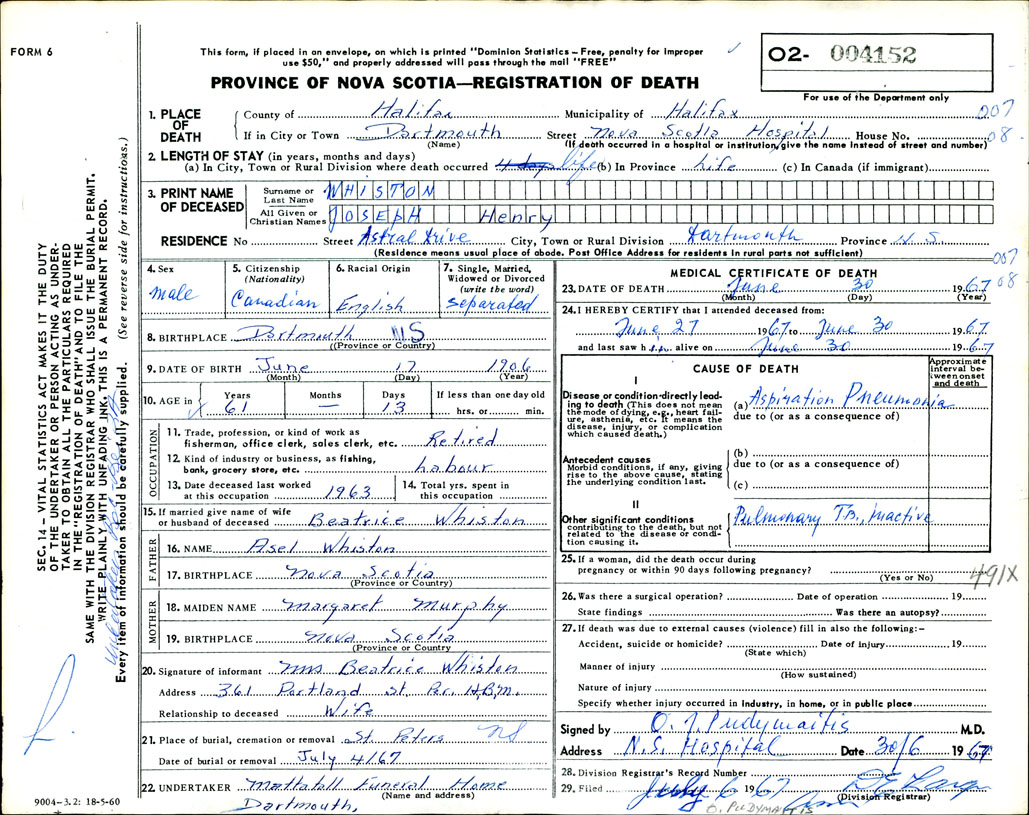 FORM 6
This form, if placed in an envelope, on which is printed "Dominion Statistics – Free, penalty for improper
use $50," and properly addressed will pass through the mail "FREE"
PROVINCE OF NOVA SCOTIA—REGISTRATION OF DEATH
02- 004152
For use of the Department only
007
08
1. PLACE OF DEATH
County of Halifax Municipality of Halifax
If in City or Town Dartmouth Street Nova Scotia Hospital House No.
(Name) (If death occurred in a hospital or institution, give the name instead of street and number)
2. LENGTH OF STAY (in years, months and days)
(a) In City, Town or Rural Division where death occurred 4 days life (b) In Province Life (c) In Canada (if immigrant)
3. PRINT NAME OF DECEASED
Surname or Last Name WHISTON
All Given or Christian Names JOSEPH Henry
RESIDENCE No Street Astral Drive City, Town or Rural Division Dartmouth Province N.S.
(Residence means usual place of abode. Post Office Address for residents in rural parts not sufficient)
007
08
4. Sex
male
5. Citizenship (Nationality)
Canadian
6. Racial Origin
English
7. Single, Married, Widowed or Divorced (write the word)
separated
8. BIRTHPLACE Dartmouth NS
(Province or Country)
9. DATE OF BIRTH June 17 1906
(Month) (Day) (Year)
10. AGE in Years Months Days If less than one day old
61 — 13 hrs. or min.
OCCUPATION
11. Trade, profession, or kind of work as
fisherman, office clerk, sales clerk, etc. Retired
12. Kind of industry or business, as fishing,
bank, grocery store, etc. Labour
13. Date deceased last worked
at this occupation 1963
14. Total yrs. spent in
this occupation
15. If married give name of wife
or husband of deceased Beatrice Whiston
FATHER
16. NAME Asel Whiston
17. BIRTHPLACE Nova Scotia
(Province or Country)
MOTHER
18. MAIDEN NAME Margaret Murphy
19. BIRTHPLACE Nova Scotia
(Province or Country
20. Signature of informant Mrs Beatrice Whiston
Address 361 Portland St. Per. H.B.M.
Relationship to deceased Wife
21. Place of burial, cremation or removal St. Peters NS
Date of burial or removal July 4/67
22. UNDERTAKER Mattatall Funeral Home
(Name and address)
Dartmouth,
MEDICAL CERTIFICATE OF DEATH
23. DATE OF DEATH June 30 1967
(Month) (Day) (Year)
24. I HEREBY CERTIFY that I attended deceased from:
June 27 1967 to June 30 1967
and last saw him alive on June 30 1967
CAUSE OF DEATH
Approximate interval between onset and death
I
Disease or condition directly leading to death (This does not mean
the mode of dying, e.g., heart failure, asthenia, etc. It means the
disease, injury, or complication
which caused death.)
(a) Aspiration Pneumonia
due to (or as a consequence of)
Antecedent causes
Morbid conditions, if any, giving
rise to the above cause, stating
the underlying condition last.
(b)
due to (or as a consequence of)
(c)
II
Other significant conditions
contributing to the death, but not
related to the disease or condition causing it.
Pulmonary TB., inactive
25. If a woman, did the death occur during
pregnancy or within 90 days following pregnancy?
(Yes or No)
491X
26. Was there a surgical operation? Date of operation 19
State findings Was there an autopsy?
27. If death was due to external causes (violence) fill in also the following:–
Accident, suicide or homicide? Date of injury 19
(State which)
Manner of injury
(How sustained)
Nature of injury
Specify whether injury occurred in industry, in home, or in public place
Signed by O. J. Pudymaitis M.D.
Address N.S. Hospital Date 30/6 1967
28. Division Registrar's Record Number
29. Filed July 6 1967
(Division Registrar)
O. PUDYMAITIS
SEC. 14 – VITAL STATISTICS ACT MAKES IT THE DUTY
OF THE UNDERTAKER OR PERSON ACTING AS UNDERTAKER TO OBTAIN ALL THE PARTICULARS REQUIRED
IN THE "REGISTRATION OF DEATH" AND TO FILE THE
SAME WITH THE DIVISION REGISTRAR WHO SHALL ISSUE THE BURIAL PERMIT.
WRITE PLAINLY WITH UNFADING INK. THIS IS A PERMANENT RECORD.
Every item of information should be carefully supplied. (See reverse side for instructions.)
9004-3.2: 18-5-60